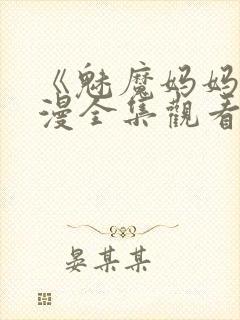 《魅魔妈妈
漫全集觀看
晏某某